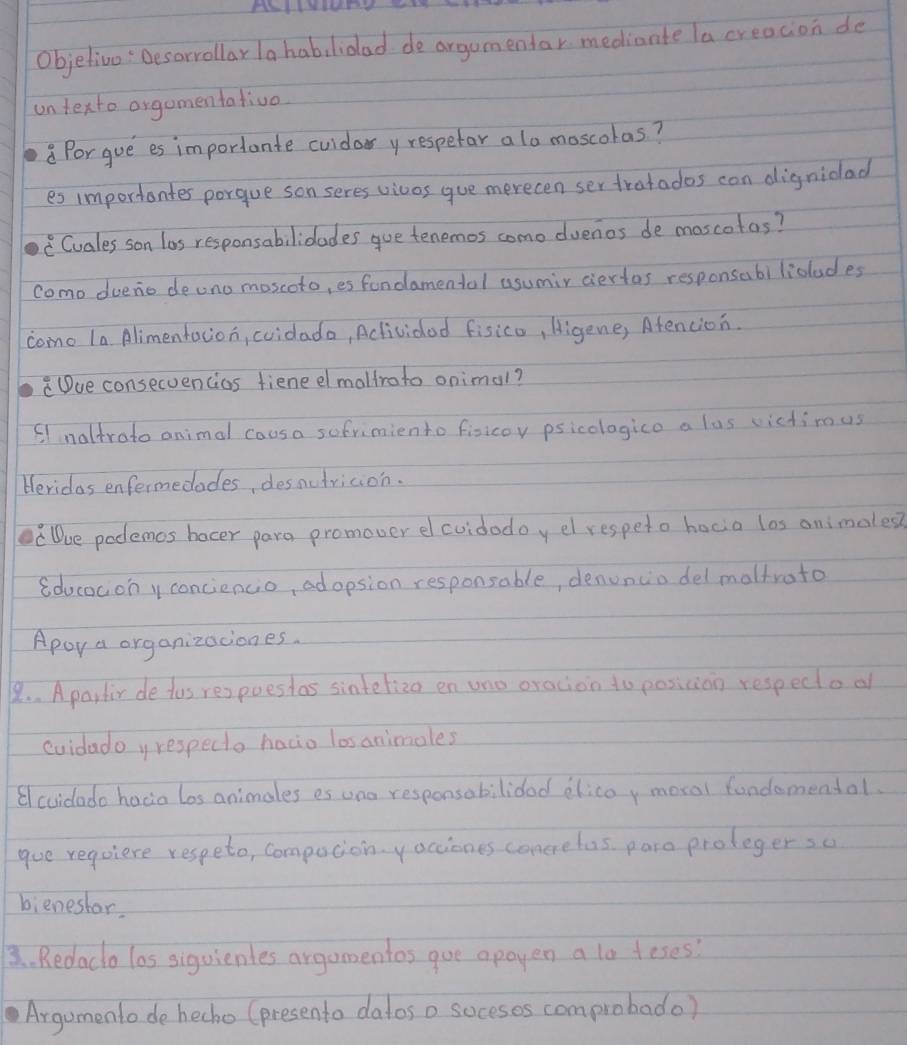 ACTIVIDAD EN
Objetivo: Desarrollar la habilidad de argumentar mediante la creación de
un texto argumentativo.
• ¿Por qué es importante cuidar y respetar a la mascotas?
es importantes porque son seres vivos que merecen ser tratados con dignidad
• ¿Cuales son los responsabilidades que tenemos como dueños de mascotas?
Como dueño de una mascota, es fundamental asumir ciertas responsabilidades
como la Alimentación, cuidado, Actividad fisica, Higene, Atencion.
• ¿Que consecuencias tiene el maltrato animal?
El naltrato animal causa sufrimiento fisico y psicologico a las victimas
Heridas enfermedades, desnutricion.
• ¿Que podemos hacer para promover el cuidado y el respeto hacia los animales?
Educacion y conciencia, adopsion responsable, denuncia del maltrato
Apoy a organizaciones.
2.. Apartir de tus respuestas sintetiza en una oración tu posición respecto al
cuidado y respecto hacia los animales
El cuidado hacia los animales es una responsabilidad ética y moral fundamental.
que requiere respeto, compacion y acciones concretas para proteger su
bienestar.
3.. Redacta los siguientes argumentos que apoyen a la teses:
• Argumento de hecho (presenta datos o sucesos comprobado)